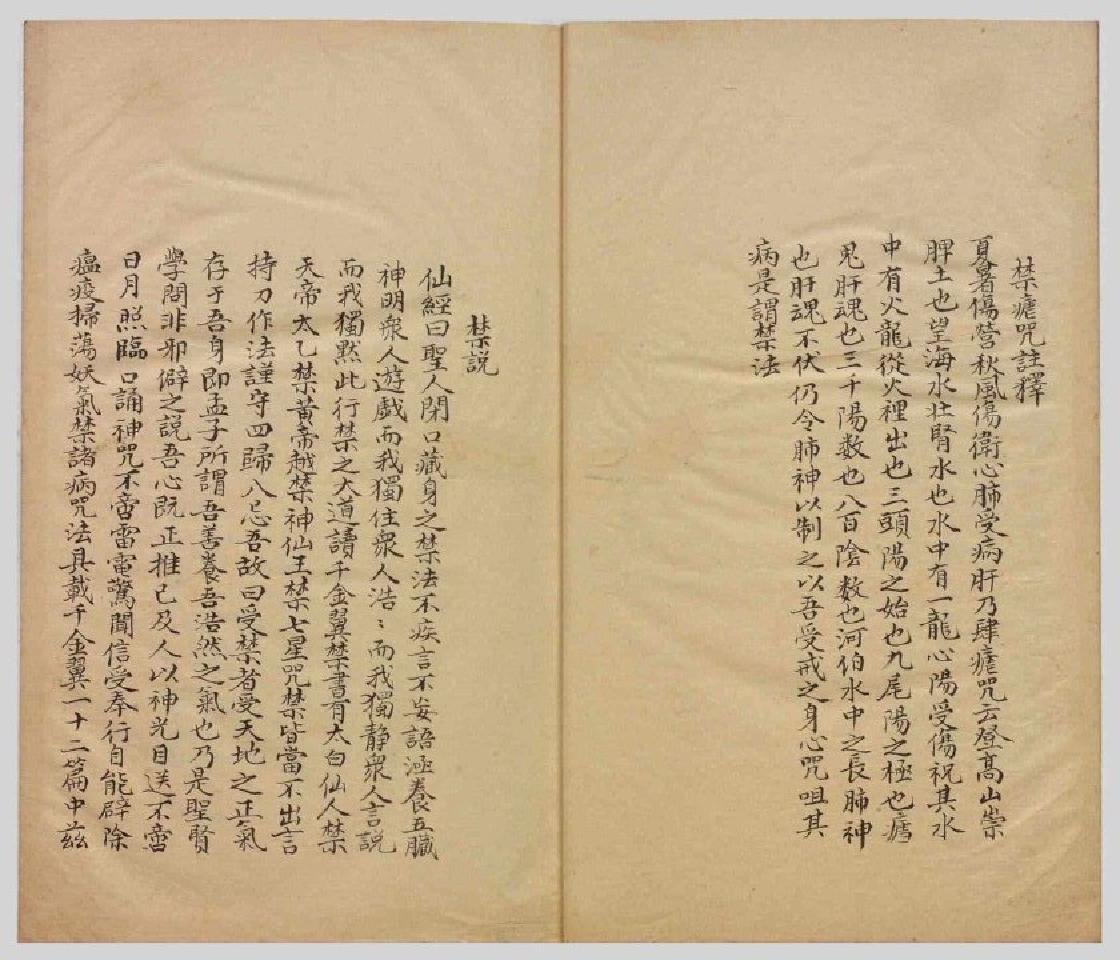 禁瘧咒註釋
夏暑傷營秋風傷衛心肺受病肝乃肆瘧咒云登高山崇
脾土也望海水壮腎水也水中有一龍心陽受傷祝其水
中有火龍從火裡出也三頭陽之始也九尾陽之極也瘧
鬼肝魂也三千陽数也八百陰数也河伯水中之長肺神
也肝魂不伏仍令肺神以制之以吾受戒之身心咒咀其
病是謂禁法
禁説
仙經曰聖人閉口藏身之禁法不疾言不妄語涵養五臟
神明衆人遊戲而我獨住衆人浩〻而我獨静衆人言説
而我獨黙此行禁之大道讀千金翼禁書有太白仙人禁
天帝太乙禁黄帝越禁神仙王禁七星咒禁皆當不出言
持刀作法謹守四歸八忌吾故曰受禁者受天地之正氣
存于吾身即孟子所謂吾善養吾浩然之氣也乃是聖賢
學問非邪僻之説吾心既正推己及人以神光目送不啻
日月照臨口誦神咒不啻雷電驚聞信受奉行自能辟除
瘟疫掃蕩妖氣禁諸病咒法具載千金翼一十二篇中兹